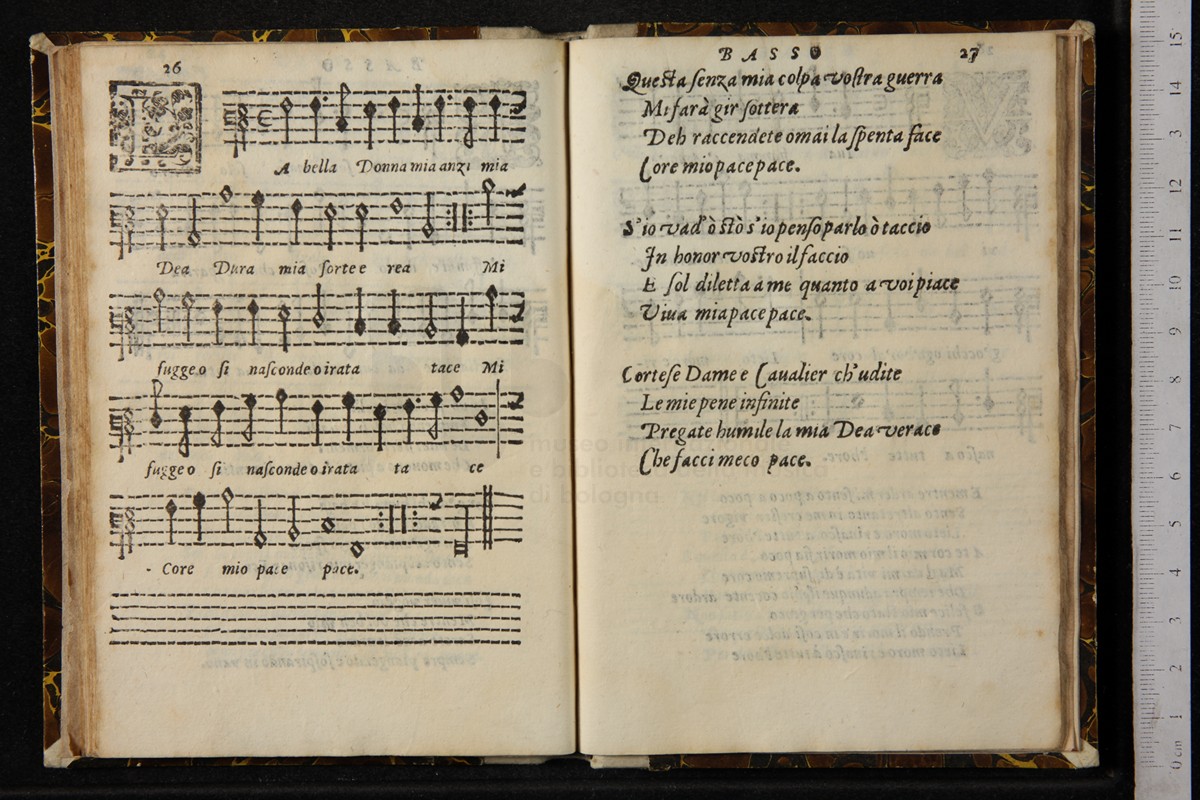 26
L A bella Donna mia anzi mia
Dea Dura mia sorte e rea Mi
fugge o si nasconde o irata tace Mi
fugge o si nasconde o irata ta ce
- Core mio pace pace.
BASSO 27
Questa senza mia colpa vostra guerra
Mi farà gir sottera
Deh raccendete omai la spenta face
Core mio pace pace.
S'io vad' ò stò s'io penso parlo ò taccio
In honor vostro il faccio
E sol diletta a me quanto a voi piace
Viua mia pace pace.
Cortese Dame e Caualier ch'udite
Le mie pene infinite
Pregate humile la mia Dea verace
Che facci meco pace.
museo
e biblioteca
di bologna
0 cm 1 2 3 4 5 6 7 8 9 10 11 12 13 14 15